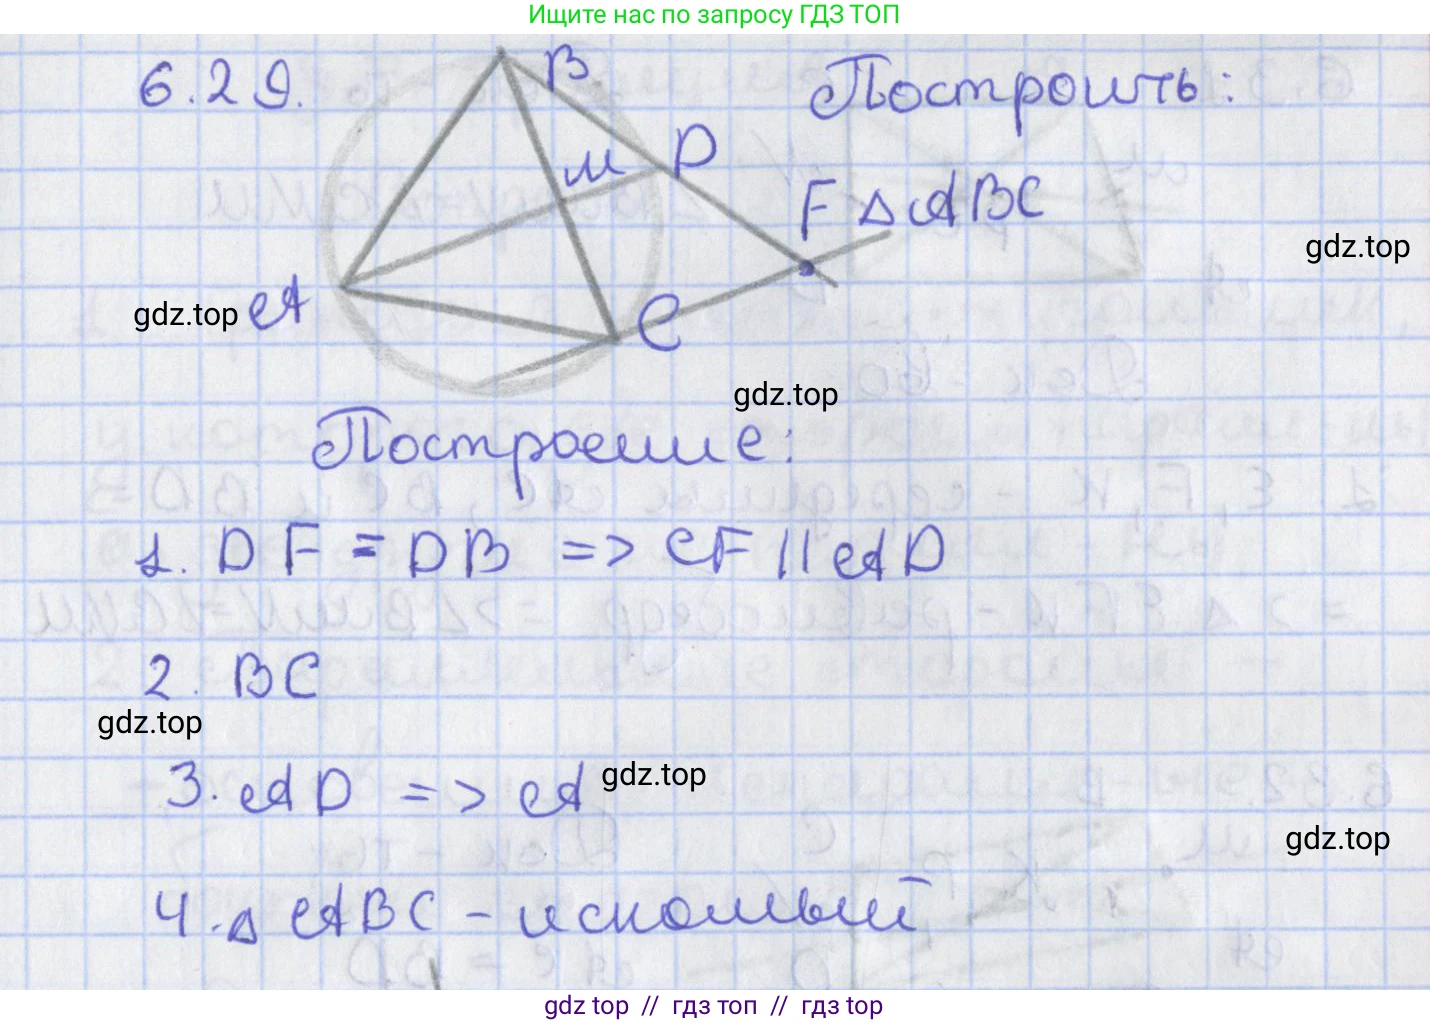 Ищите нас по запросу ГДЗ ТОП
6.29.
B
Построить:
M
D
F
△ABC
gdz.top
gdz.top
A
C
gdz.top
Построение:
1. DF = DB => CF || AD
2. BC
gdz.top
3. AD => A
gdz.top
gdz.top
4. △ ABC - искомый
gdz top // гдз топ // гдз top